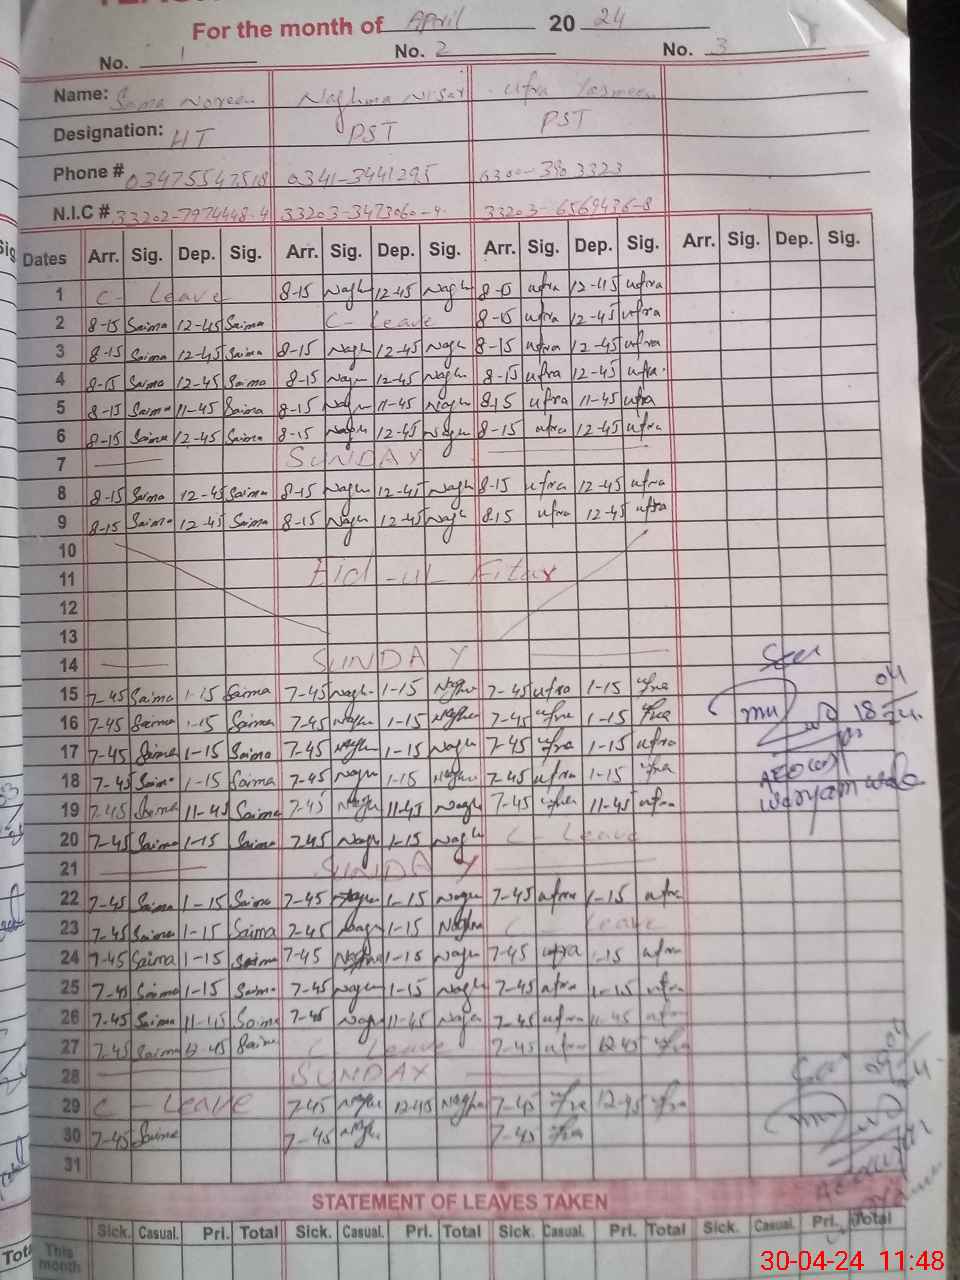 For the month of April 20 24
No. 1 No. 2 No. 3
Name: Saima Noreen Naghma Nisar Ufra Yasmeen
Designation: HT PST PST
Phone # 03475547518 0341-3441295 0300-3903323
N.I.C # 33202-7974448-4 33203-3473060-4 33203-6569436-8
Dates Arr. Sig. Dep. Sig. Arr. Sig. Dep. Sig. Arr. Sig. Dep. Sig. Arr. Sig. Dep. Sig.
1 C- Leave 8-15 Nagh 12-45 Nagh 8-15 ufra 12-45 ufra
2 8-15 Saima 12-45 Saima C- Leave 8-15 ufra 12-45 ufra
3 8-15 Saima 12-45 Saima 8-15 Nagh 12-45 Nagh 8-15 ufra 12-45 ufra
4 8-15 Saima 12-45 Saima 8-15 Nagh 12-45 Nagh 8-15 ufra 12-45 ufra
5 8-15 Saima 11-45 Saima 8-15 Nagh 11-45 Nagh 8-15 ufra 11-45 ufra
6 8-15 Saima 12-45 Saima 8-15 Nagh 12-45 Nagh 8-15 ufra 12-45 ufra
7 SUNDAY
8 8-15 Saima 12-45 Saima 8-15 Nagh 12-45 Nagh 8-15 ufra 12-45 ufra
9 8-15 Saima 12-45 Saima 8-15 Nagh 12-45 Nagh 8-15 ufra 12-45 ufra
10
11 Eid-ul Fitar
12
13
14 SUNDAY
15 7-45 Saima 1-15 Saima 7-45 Nagh 1-15 Nagh 7-45 ufra 1-15 ufra
16 7-45 Saima 1-15 Saima 7-45 Nagh 1-15 Nagh 7-45 ufra 1-15 ufra
17 7-45 Saima 1-15 Saima 7-45 Nagh 1-15 Nagh 7-45 ufra 1-15 ufra
18 7-45 Saima 1-15 Saima 7-45 Nagh 1-15 Nagh 7-45 ufra 1-15 ufra
19 7-45 Saima 11-45 Saima 7-45 Nagh 11-45 Nagh 7-45 ufra 11-45 ufra
20 7-45 Saima 1-15 Saima 7-45 Nagh 1-15 Nagh C- Leave
21 SUNDAY
22 7-45 Saima 1-15 Saima 7-45 Nagh 1-15 Nagh 7-45 ufra 1-15 ufra
23 7-45 Saima 1-15 Saima 7-45 Nagh 1-15 Naghma C- Leave
24 7-45 Saima 1-15 Saima 7-45 Nagh 1-15 Nagh 7-45 ufra 1-15 ufra
25 7-45 Saima 1-15 Saima 7-45 Nagh 1-15 Nagh 7-45 ufra 1-15 ufra
26 7-45 Saima 11-45 Saima 7-45 Nagh 11-45 Nagh 7-45 ufra 11-45 ufra
27 7-45 Saima 12-45 Saima C Leave 7-45 ufra 12-45 ufra
28 SUNDAY
29 C- LEAVE 7-45 Nagh 12-45 Nagh 7-45 ufra 12-45 ufra
30 7-45 Saima 7-45 Nagh 7-45 ufra
31
STATEMENT OF LEAVES TAKEN
Sick. Casual. Pri. Total Sick. Casual. Pri. Total Sick. Casual. Pri. Total Sick. Casual. Pri. Total
This month
30-04-24 11:48